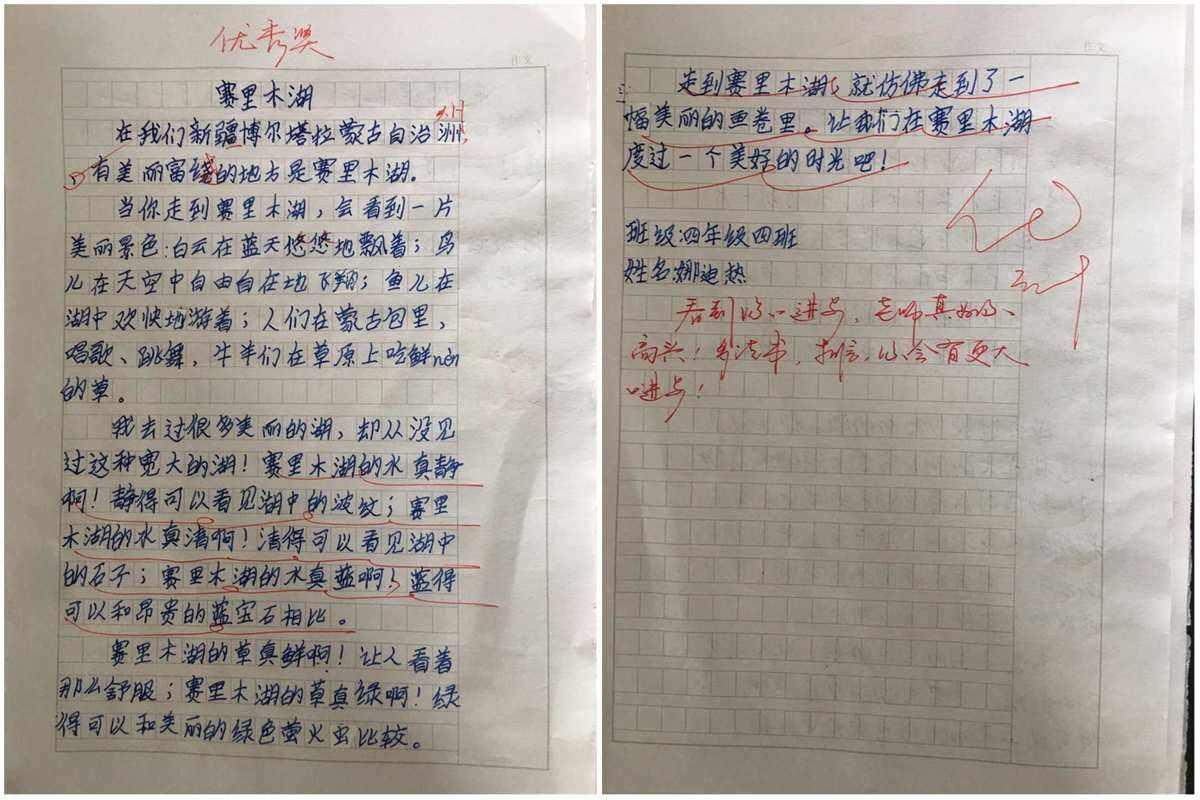 优秀奖
作文
赛里木湖
州
在我们新疆博尔塔拉蒙古自治洲,
有美丽富饶的地方是赛里木湖。
当你走到赛里木湖,会看到一片
美丽景色:白云在蓝天悠悠地飘着;鸟
儿在天空中自由自在地飞翔;鱼儿在
湖中欢快地游着;人们在蒙古包里,
唱歌、跳舞,牛羊们在草原上吃鲜nèn
的草。
我去过很多美丽的湖,却从没见
过这种宽大的湖!赛里木湖的水真静
啊!静得可以看见湖中的波纹;赛里
木湖的水真清啊!清得可以看见湖中
的石子;赛里木湖的水真蓝啊!蓝得
可以和昂贵的蓝宝石相比。
赛里木湖的草真鲜啊!让人看着
那么舒服;赛里木湖的草真绿啊!绿
得可以和美丽的绿色萤火虫比较。
作文
走到赛里木湖,就仿佛走到了一
幅美丽的画卷里。让我们在赛里木湖
度过一个美好的时光吧!
优
班级:四年级四班
姓名:娜迪热
看到你的进步,老师真为你
高兴!多读书,你会有更大
的进步!